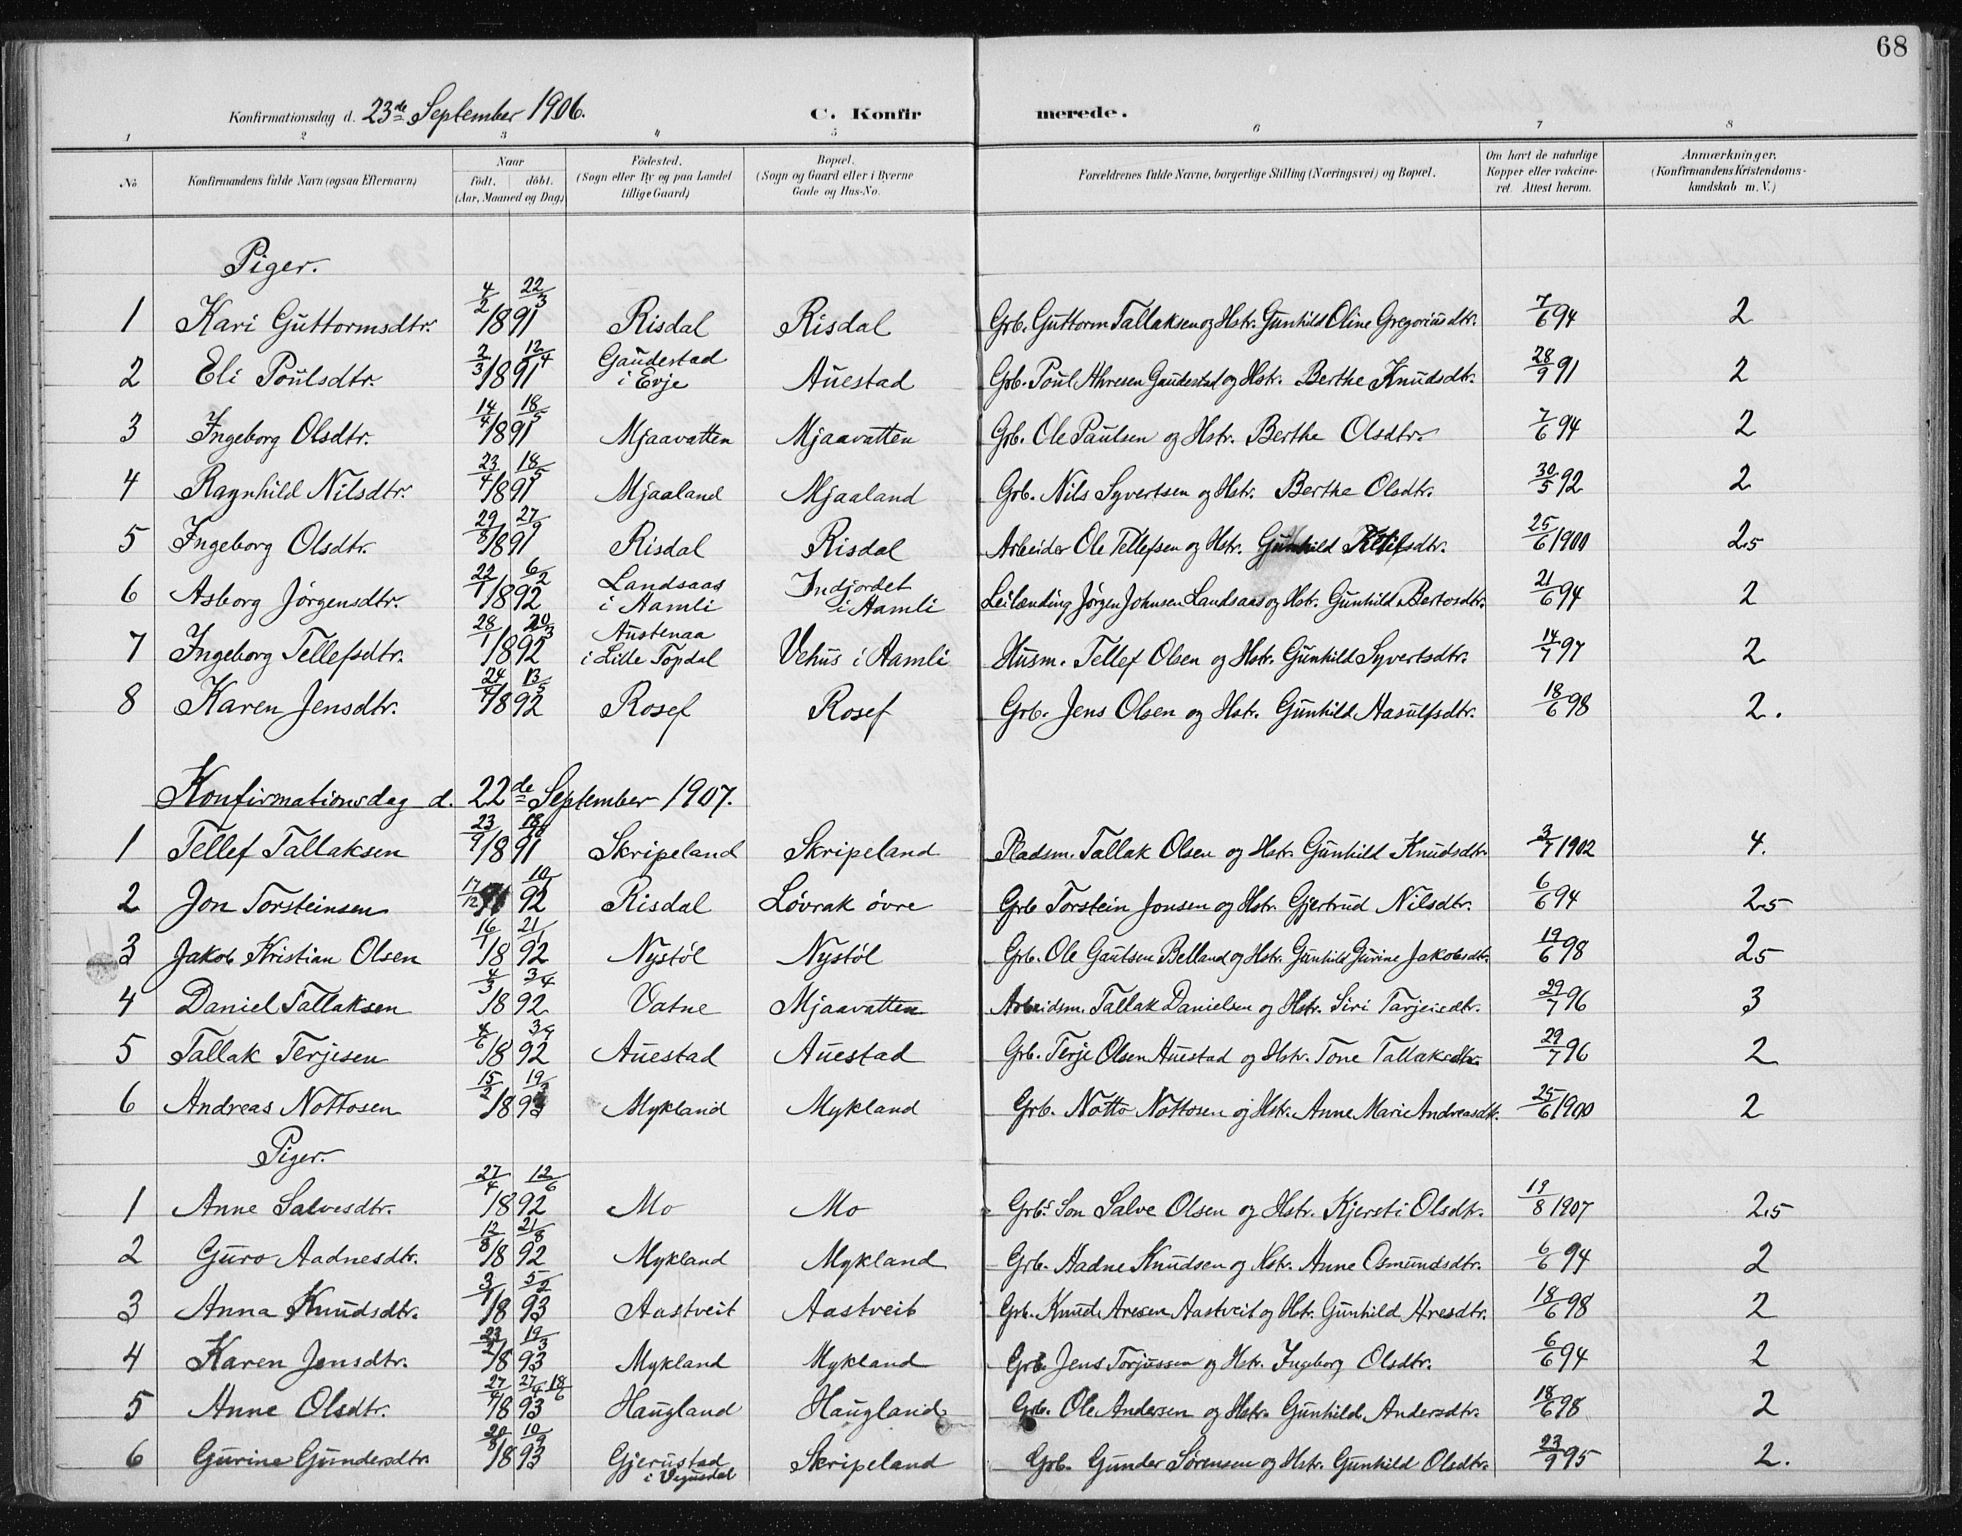 68
Konfirmationsdag d. 23de September 1906. C. Konfirmerede.
1 2 3 4 5 6 7 8
No Konfirmandens fulde Navn (ogsaa Efternavn) Naar født. døbt. (Aar, Maaned og Dag) Fødested. (Sogn eller By og paa Landet tillige Gaard) Bopæl. (Sogn og Gaard eller i Byerne Gade og Hus-No. Forældrenes fulde Navne, borgerlige Stilling (Næringsvei) og Bopæl. Om havt de naturlige Kopper eller vakcineret. Attest herom. Anmærkninger. (Konfirmandens Kristendomskundskab m. V.)
Piger.
1 Kari Guttormsdtr. 4/2 1891 22/3 Risdal Risdal Grb. Guttorm Tallaksen og Hstr. Gunhild Oline Gregoriusdtr. 7/6 94 2
2 Eli Poulsdtr. 2/3 1891 12/4 Gaudestad i Evje Auestad Grb. Poul Ahresen Gaudestad og Hstr. Berthe Knudsdtr. 28/9 91 2
3 Ingeborg Olsdtr. 14/4 1891 18/5 Mjaavatten Mjaavatten Grb. Ole Paulsen og Hstr. Berthe Olsdtr. 7/6 94 2
4 Ragnhild Nilsdtr. 23/4 1891 18/5 Mjaaland Mjaaland Grb. Nils Syvertsen og Hstr. Berthe Olsdtr. 30/5 92 2
5 Ingeborg Olsdtr. 29/8 1891 27/9 Risdal Risdal Arbeider Ole Tellefsen og Hstr. Gunhild Ketilsdtr. 25/6 1900 2.5
6 Asborg Jørgensdtr. 22/1 1892 6/2 Landsaas i Hamli Indjordet i Hamli Leilænding Jørgen Johnsen Landsaas og Hstr. Gunhild Bertosdtr. 21/6 94 2
7 Ingeborg Tellefsdtr. 28/1 1892 20/3 Austenaa i Lille Topdal Vehus i Hamli Husm. Tellef Olsen og Hstr. Gunhild Syvertsdtr. 14/7 97 2
8 Karen Jensdtr. 24/4 1892 13/5 Rosef Rosef Grb. Jens Olsen og Hstr. Gunhild Aasulfsdtr. 18/6 98 2.
Konfirmationsdag d. 22de September 1907.
1 Tellef Tallaksen 23/9 1891 18/10 Skripeland Skripeland Pladsm. Tallak Olsen og Hstr. Gunhild Knudsdtr. 3/7 1902 4.
2 Jon Torsteinsen 17/12 91 10/1 92 Risdal Løvrak øvre Grb Torstein Jonsen og Hstr. Gjertrud Nilsdtr. 6/6 94 2.5
3 Jakob Kristian Olsen 16/1 1892 21/ Nystøl Nystøl Grb. Ole Gautsen Belland og Hstr. Gunhild Gurine Jakobsdtr. 19/6 98 25
4 Daniel Tallaksen 4/3 1892 3/4 Vatne Mjaavatten Arbeidsm. Tallak Danielsen og Hstr. Siri Tarjeisdtr. 29/7 96 3
5 Tallak Terjesen 4/6 1892 Auestad Auestad Grb. Terje Olsen Auestad og Hstr. Tone Tallaksdtr. 29/7 96 2
6 Andreas Nottosen 15/2 1893 19/3 Mykland Mykland Grb. Notto Nottosen og Hstr. Anne Marie Andreasdtr. 25/6 1900 2
Piger.
1 Anne Salvesdtr. 27/4 1892 12/6 Mo Mo Grbs Søn Salve Olsen og Hstr. Kjersti Olsdtr. 19/8 1907 2.5
2 Guro Aadnesdtr. 12/8 1892 21/8 Mykland Mykland Grb. Aadne Knudsen og Hstr. Anne Osmundsdtr. 6/6 94 2
3 Anna Knudsdtr. 3/1 1893 5/2 Aastveit Aastveit Grb. Knud Aresen Aastveit og Hstr. Gunhild Aresdtr. 18/6 98 2
4 Karen Jensdtr. 23/2 1893 19/3 Mykland Mykland Grb. Jens Torjussen og Hstr. Ingeborg Olsdtr. 6/6 94 2
5 Anne Olsdtr. 27/4 1893 27/4 18/6 Haugland Haugland Grb. Ole Andersen og Hstr. Gunhild Andersdtr. 18/6 98 2
6 Gurine Gundersdtr. 20/8 1893 10/9 Gjerustad i Vegusdal Skripeland Grb. Gunder Sørensen og Hstr. Gunhild Olsdtr. 23/9 95 2.